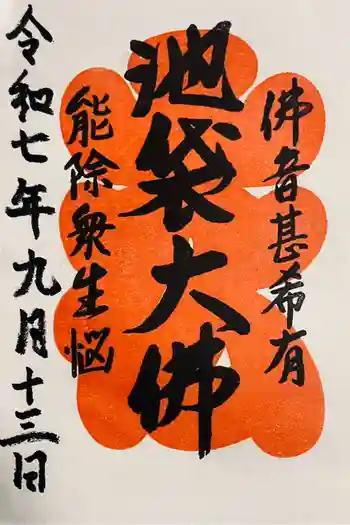 佛音甚希有
池袋大佛
能除衆生惱
令和七年九月十三日